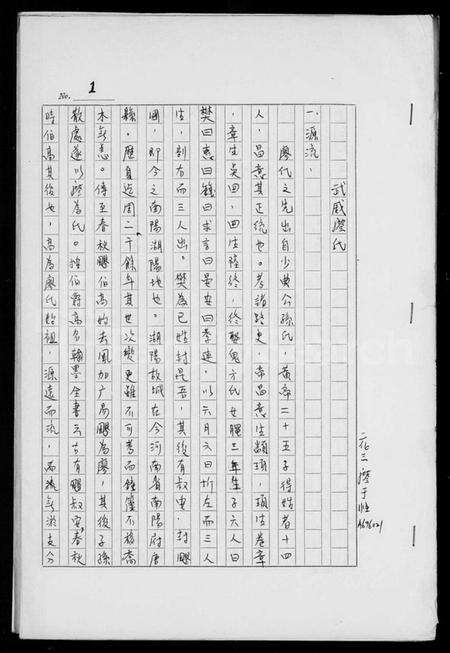 No. 1
武威廖氏
一、源流：
廖氏之先出自少典公孫氏，黃帝二十五子得姓者十四
人，昌意其正統也。考諸路史，帝昌意生顓頊，頊生卷章
，章生吳回，回生陸終，終娶鬼方氏女孕三年生子六人曰
樊曰惠曰籛曰求言曰晏安曰季連，以六月六日坼左而三人
生，剖右而三人出。樊為己姓封昆吾，其後有叔安，封飂
國，即今之南陽湖陽地也。湖陽故城在今河南省南陽府唐
縣。歷夏迄周二千餘年其世次變更雖不可考而鐘簴不移喬
木無恙。傳至春秋飂伯高始去風加广易飂為廖，其後子孫
散處遂以廖為氏。按伯爵高名翰墨全書云古有飂叔安春秋
時伯高其後也，高為廖氏始祖，源遠而流，而流
花三廖于